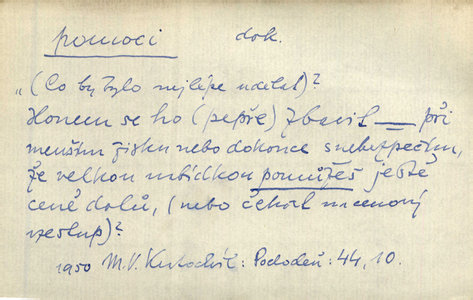 pomoci dok.
„(Co by bylo nejlépe udělat)?
Honem se ho (pepře) zbavit — při
menším zisku nebo dokonce s nebezpečím,
že velkou nabídkou pomůžeš ještě
ceně dolů, (nebo čekat na cenový
vzestup)?
1950 M.V. Kratochvíl: Podoben: 44, 10.